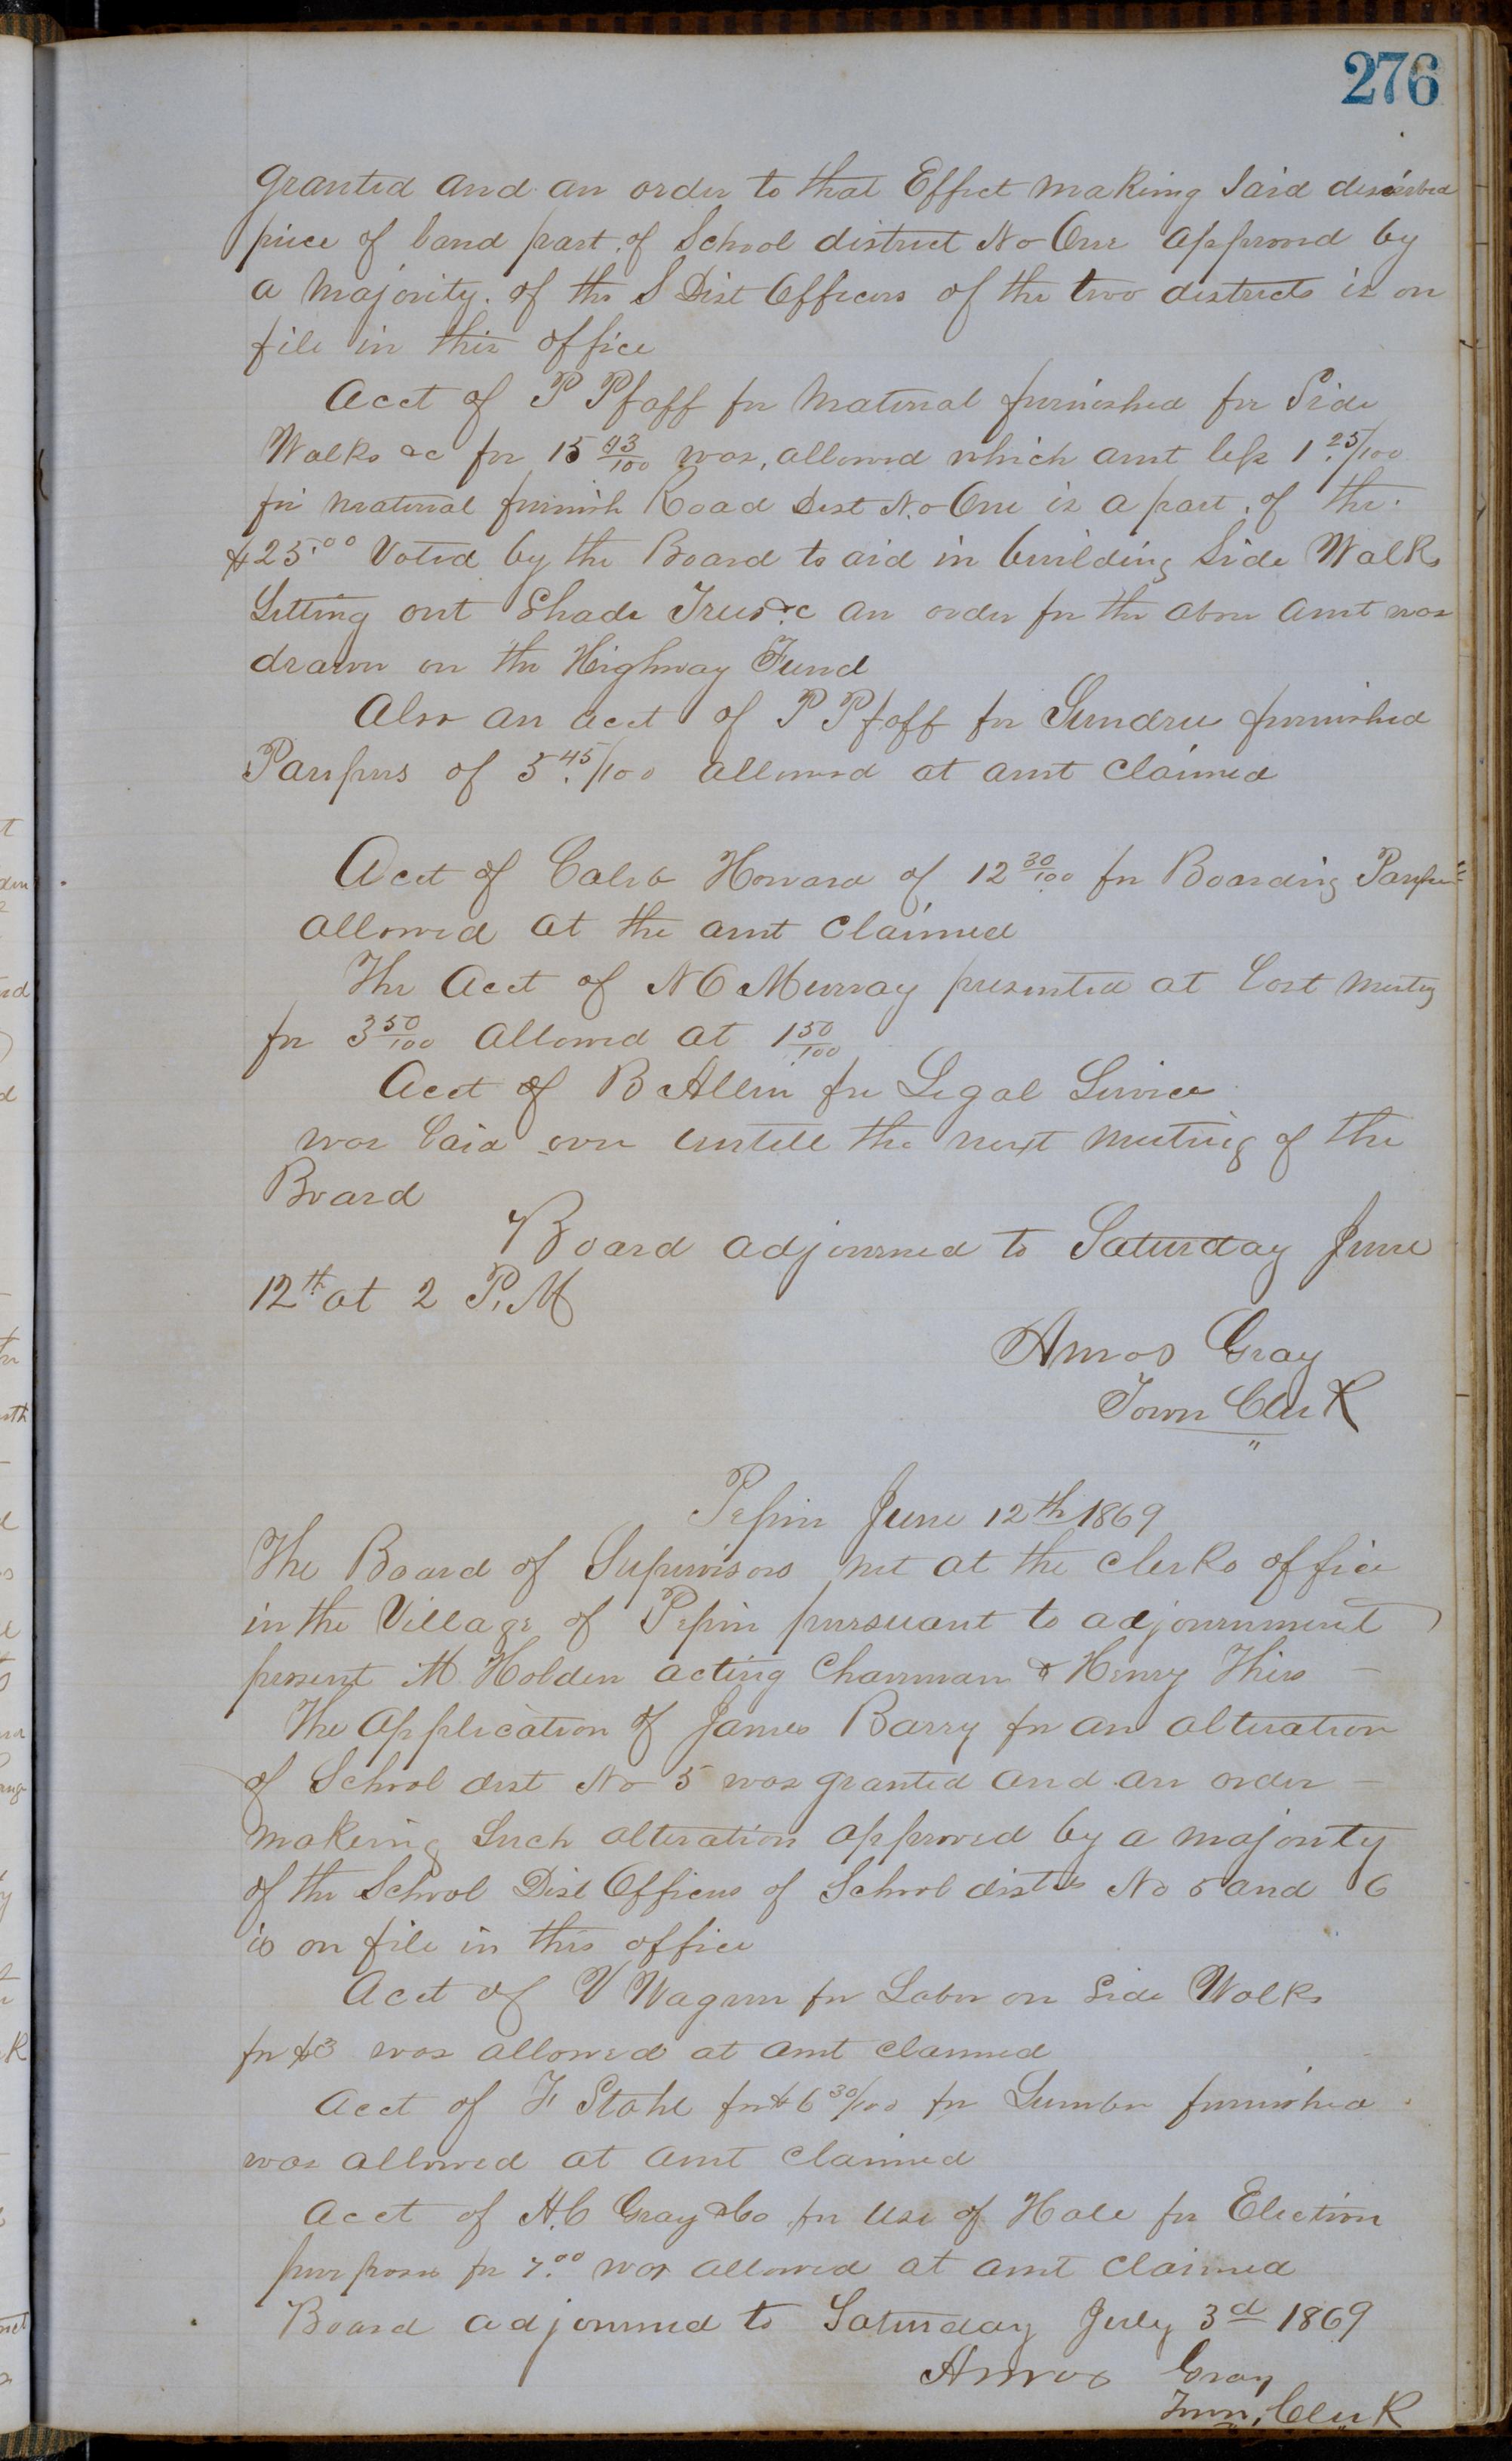 276
granted and an order to that Effect making Said described
piece of land part of School district No One approved by
a majority of the S Dist Officers of the two districts is on
file in this office
Acct of P Pfaff for Material furnished for Side
Walks &c for 15 43/100 was allowed which amt less 1.25/100
for material furnish Road Dist No One is a part of the
$25.00 Voted by the Board to aid in building Side Walks
Setting out Shade Trees &c an order for the above amt was
drawn on the Highway Fund
Also an acct of P Pfaff for Sundries furnished
Paupers of 5.45/100 allowed at amt Claimed
Acct of Caleb Howard of 12 30/100 for Boarding Paupers
allowed at the amt Claimed
The Acct of N C Murray presented at last meeting
for 3 50/100 allowed at 1 50/100
Acct of B Allen for Legal Service
was laid over untill the next meeting of the
Board
Board adjourned to Saturday June
12th at 2 P.M
Amos Gray
Town Clerk
Pepin June 12th 1869
The Board of Supervisors met at the Clerks office
in the Village of Pepin pursuant to adjournment
present M Holden acting Chairman & Henry Thies
The Application of James Barry for an alteration
of School dist No 5 was granted and an order
making Such alteration approved by a majority
of the School Dist Officers of School dists No 5 and 6
is on file in this office
Acct of V Wagner for Labor on Side Walks
for $3 was allowed at amt claimed
Acct of F Stahl for $6 30/100 for Lumber furnished
was allowed at amt Claimed
Acct of H.C Gray & Co for Use of Hall for Election
purposes for 7.00 was allowed at amt claimed
Board adjourned to Saturday July 3d 1869
Amos Gray
Town Clerk